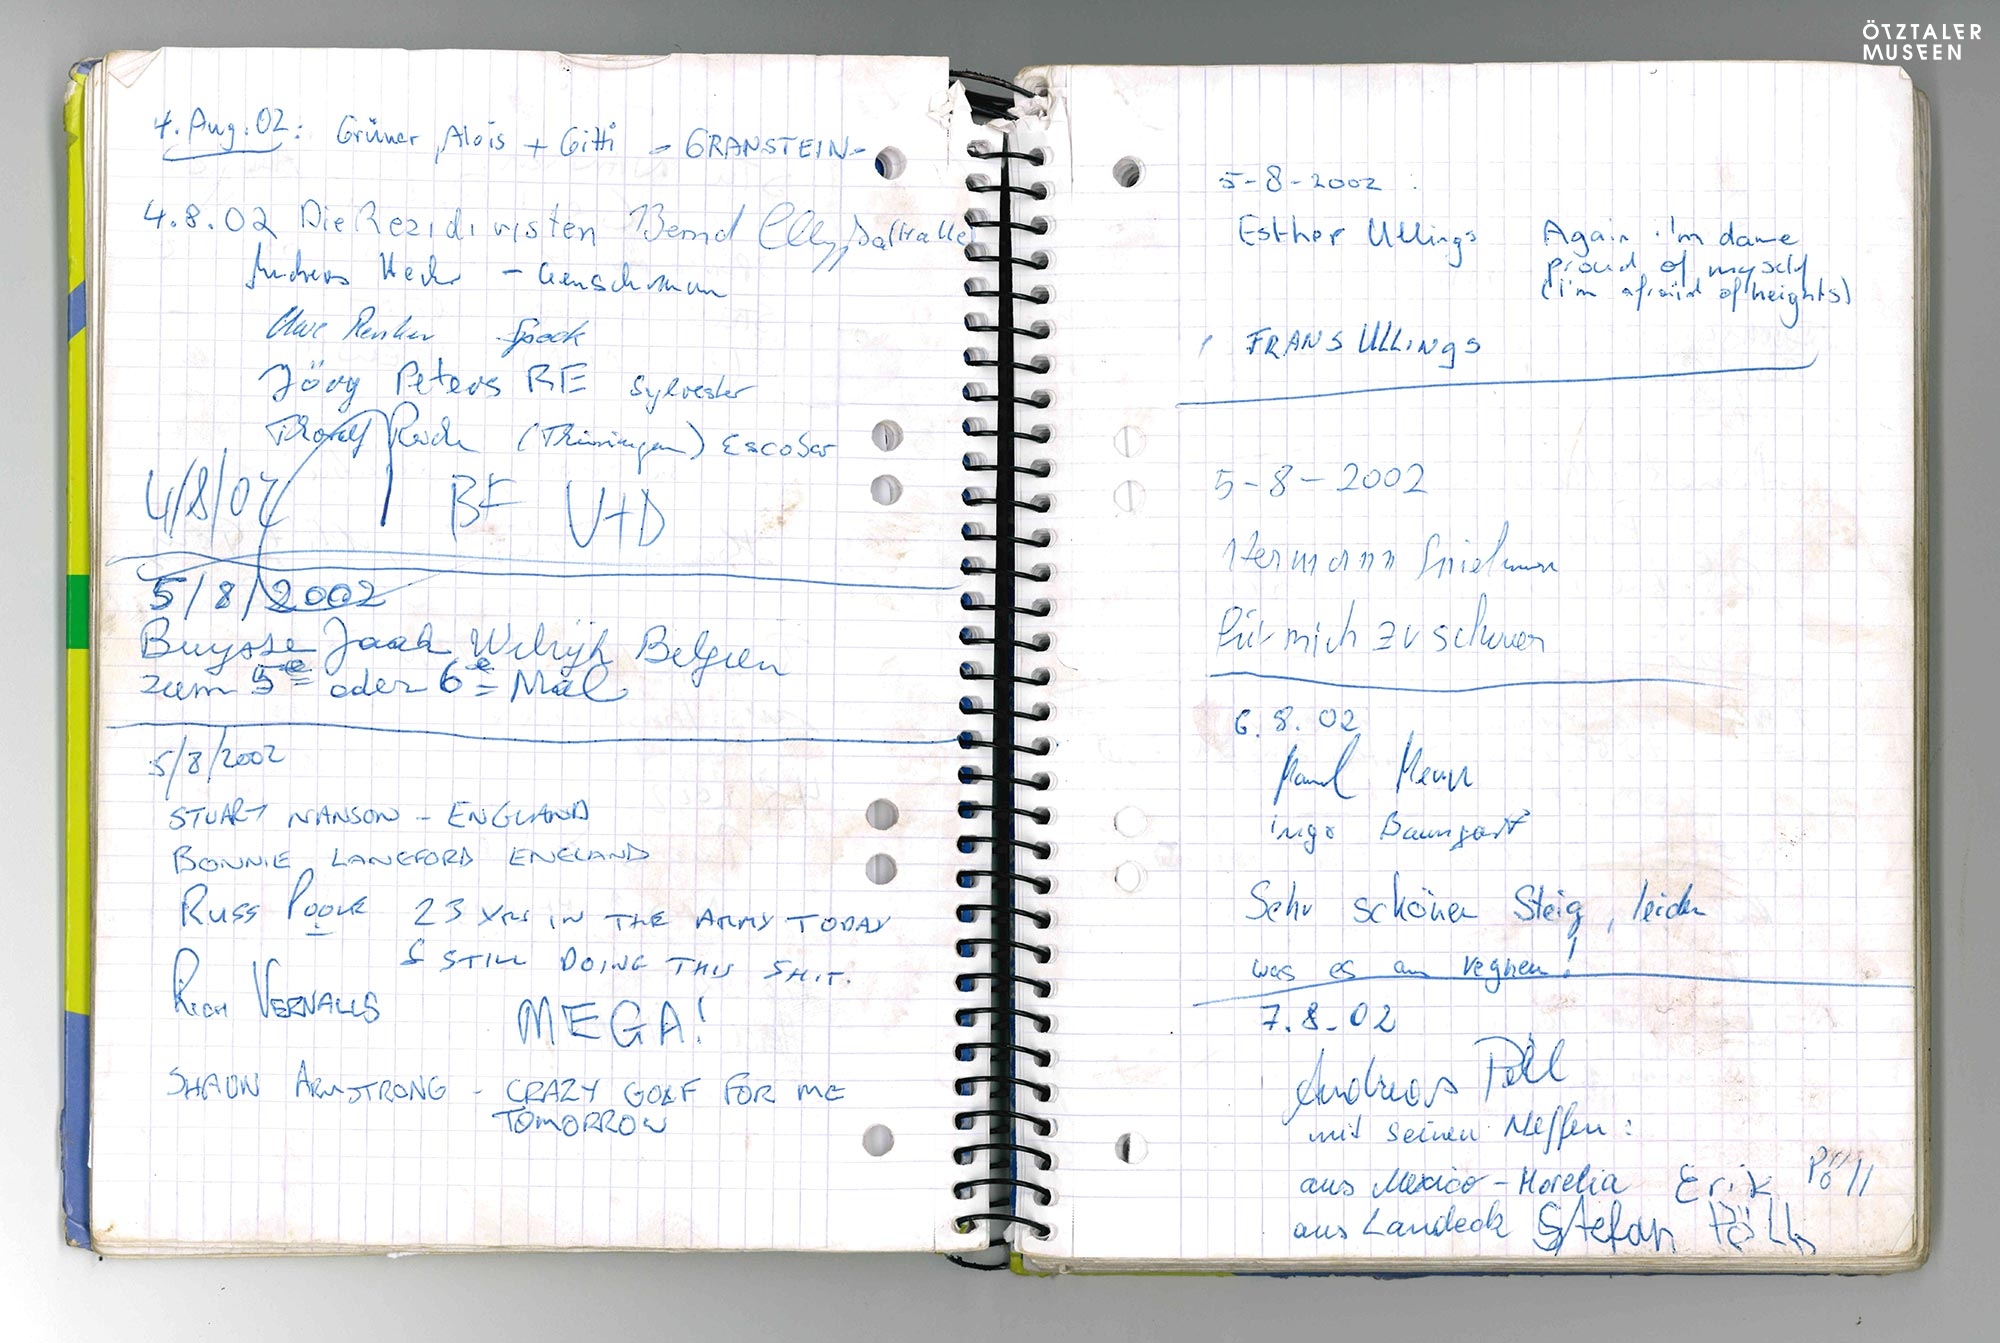 ÖTZTALER
MUSEEN
4. Aug. 02: Grüner, Alois + Gitti - GRANSTEIN -
4.8.02 Die Rezidivisten Bernd
Andreas - Genschman
Uwe Spock
Jörg Peters RE Sylvester
(Thüringen) Escobar
4/8/02 BF V+D
5/8/2002
Buysse Jaak Wilrijk Belgien
zum 5e oder 6e Mal
5/8/2002
STUART NANSON - ENGLAND
BONNIE LANGFORD ENGLAND
RUSS POOLE 23 YRS IN THE ARMY TODAY
& STILL DOING THIS SHIT.
RICH VERNALLS
MEGA!
SHAUN ARMSTRONG - CRAZY GOLF FOR ME
TOMORROW
5-8-2002
Esther Ullings Again i'm dame
proud of myself
(i'm afraid of heights)
FRANS Ullings
5-8-2002
Hermann
für mich zu schwer
6.8.02
ingo Baumgart
Sehr schöner Steig, leider
was es am regnen!
7.8.02
Andreas Pöll
mit seinen Neffen:
aus Mexico - Morelia Erik Pöll
aus Landeck Stefan Pöll